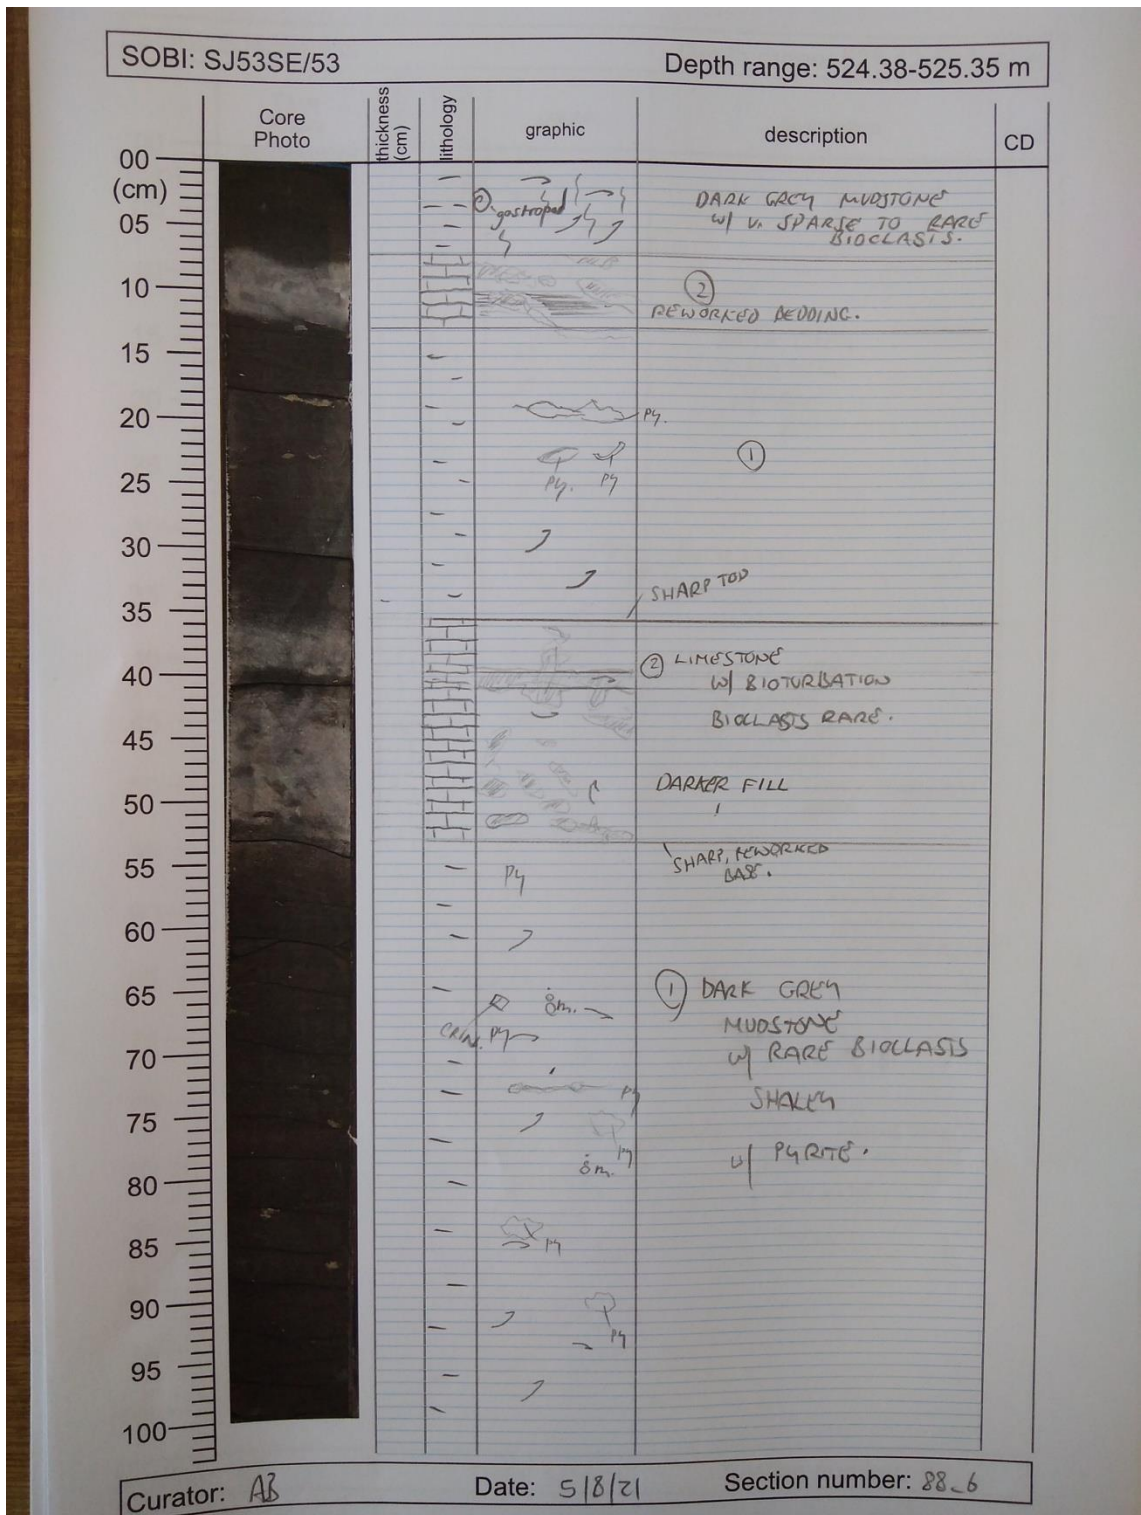 SOBI: SJ53SE/53
Depth range: 524.38-525.35 m
Core
Photo
thickness
(cm)
lithology
graphic
description
CD
00
(cm)
05
10
15
20
25
30
35
40
45
50
55
60
65
70
75
80
85
90
95
100
gastropod
DARK GREY MUDSTONE
w/ V. SPARSE TO RARE
BIOCLASTS.
2
REWORKED BEDDING.
Py.
1
Py. Py
SHARP TOP
2 LIMESTONE
W/ BIOTURBATION
BIOCLASTS RARE.
DARKER FILL
SHARP, REWORKED
BASE.
Py
1 DARK GREY
MUDSTONE
w/ RARE BIOCLASTS
SHALEY
w/ PYRITE.
8m.
CRIN. Py
Py
Py
8m.
Py
Py
Curator: AB
Date: 5/8/21
Section number: 88_6